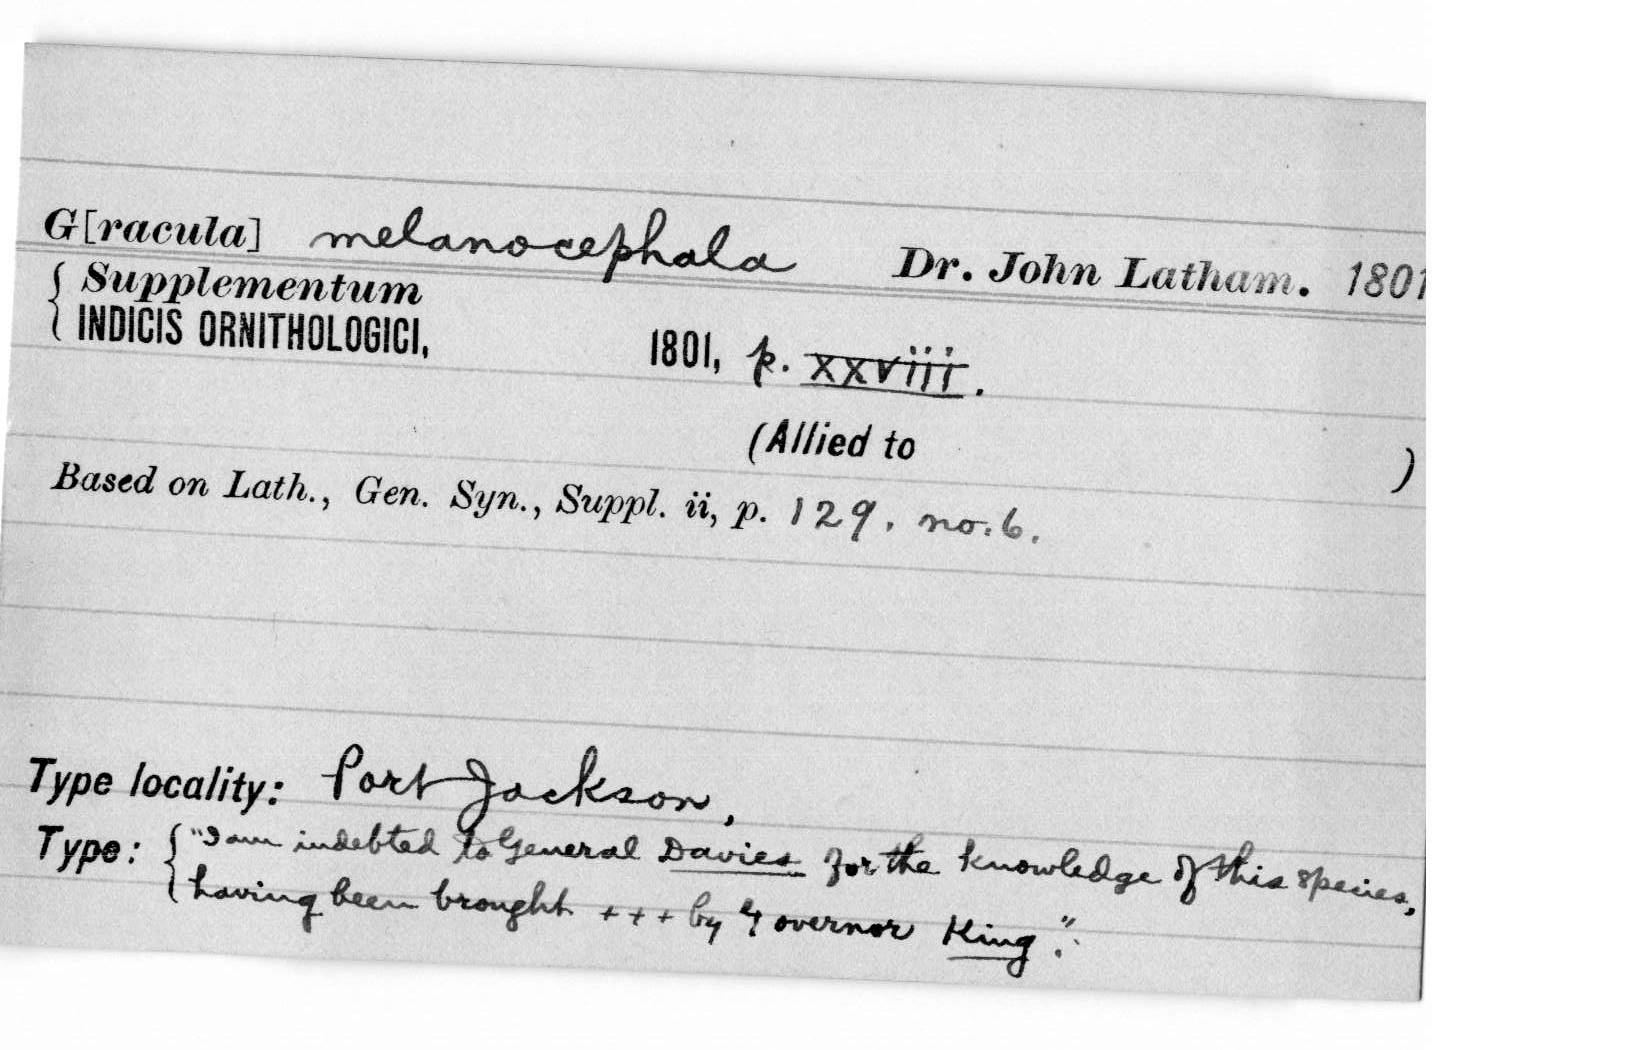 G[racula] melanocephala Dr. John Latham. 1801
Supplementum
INDICIS ORNITHOLOGICI, 1801, p. xxviii.
(Allied to )
Based on Lath., Gen. Syn., Suppl. ii, p. 129. no. 6.
Type locality: Port Jackson,
Type: "I am indebted to General Davies for the knowledge of this species,
having been brought + + + by Governor King."